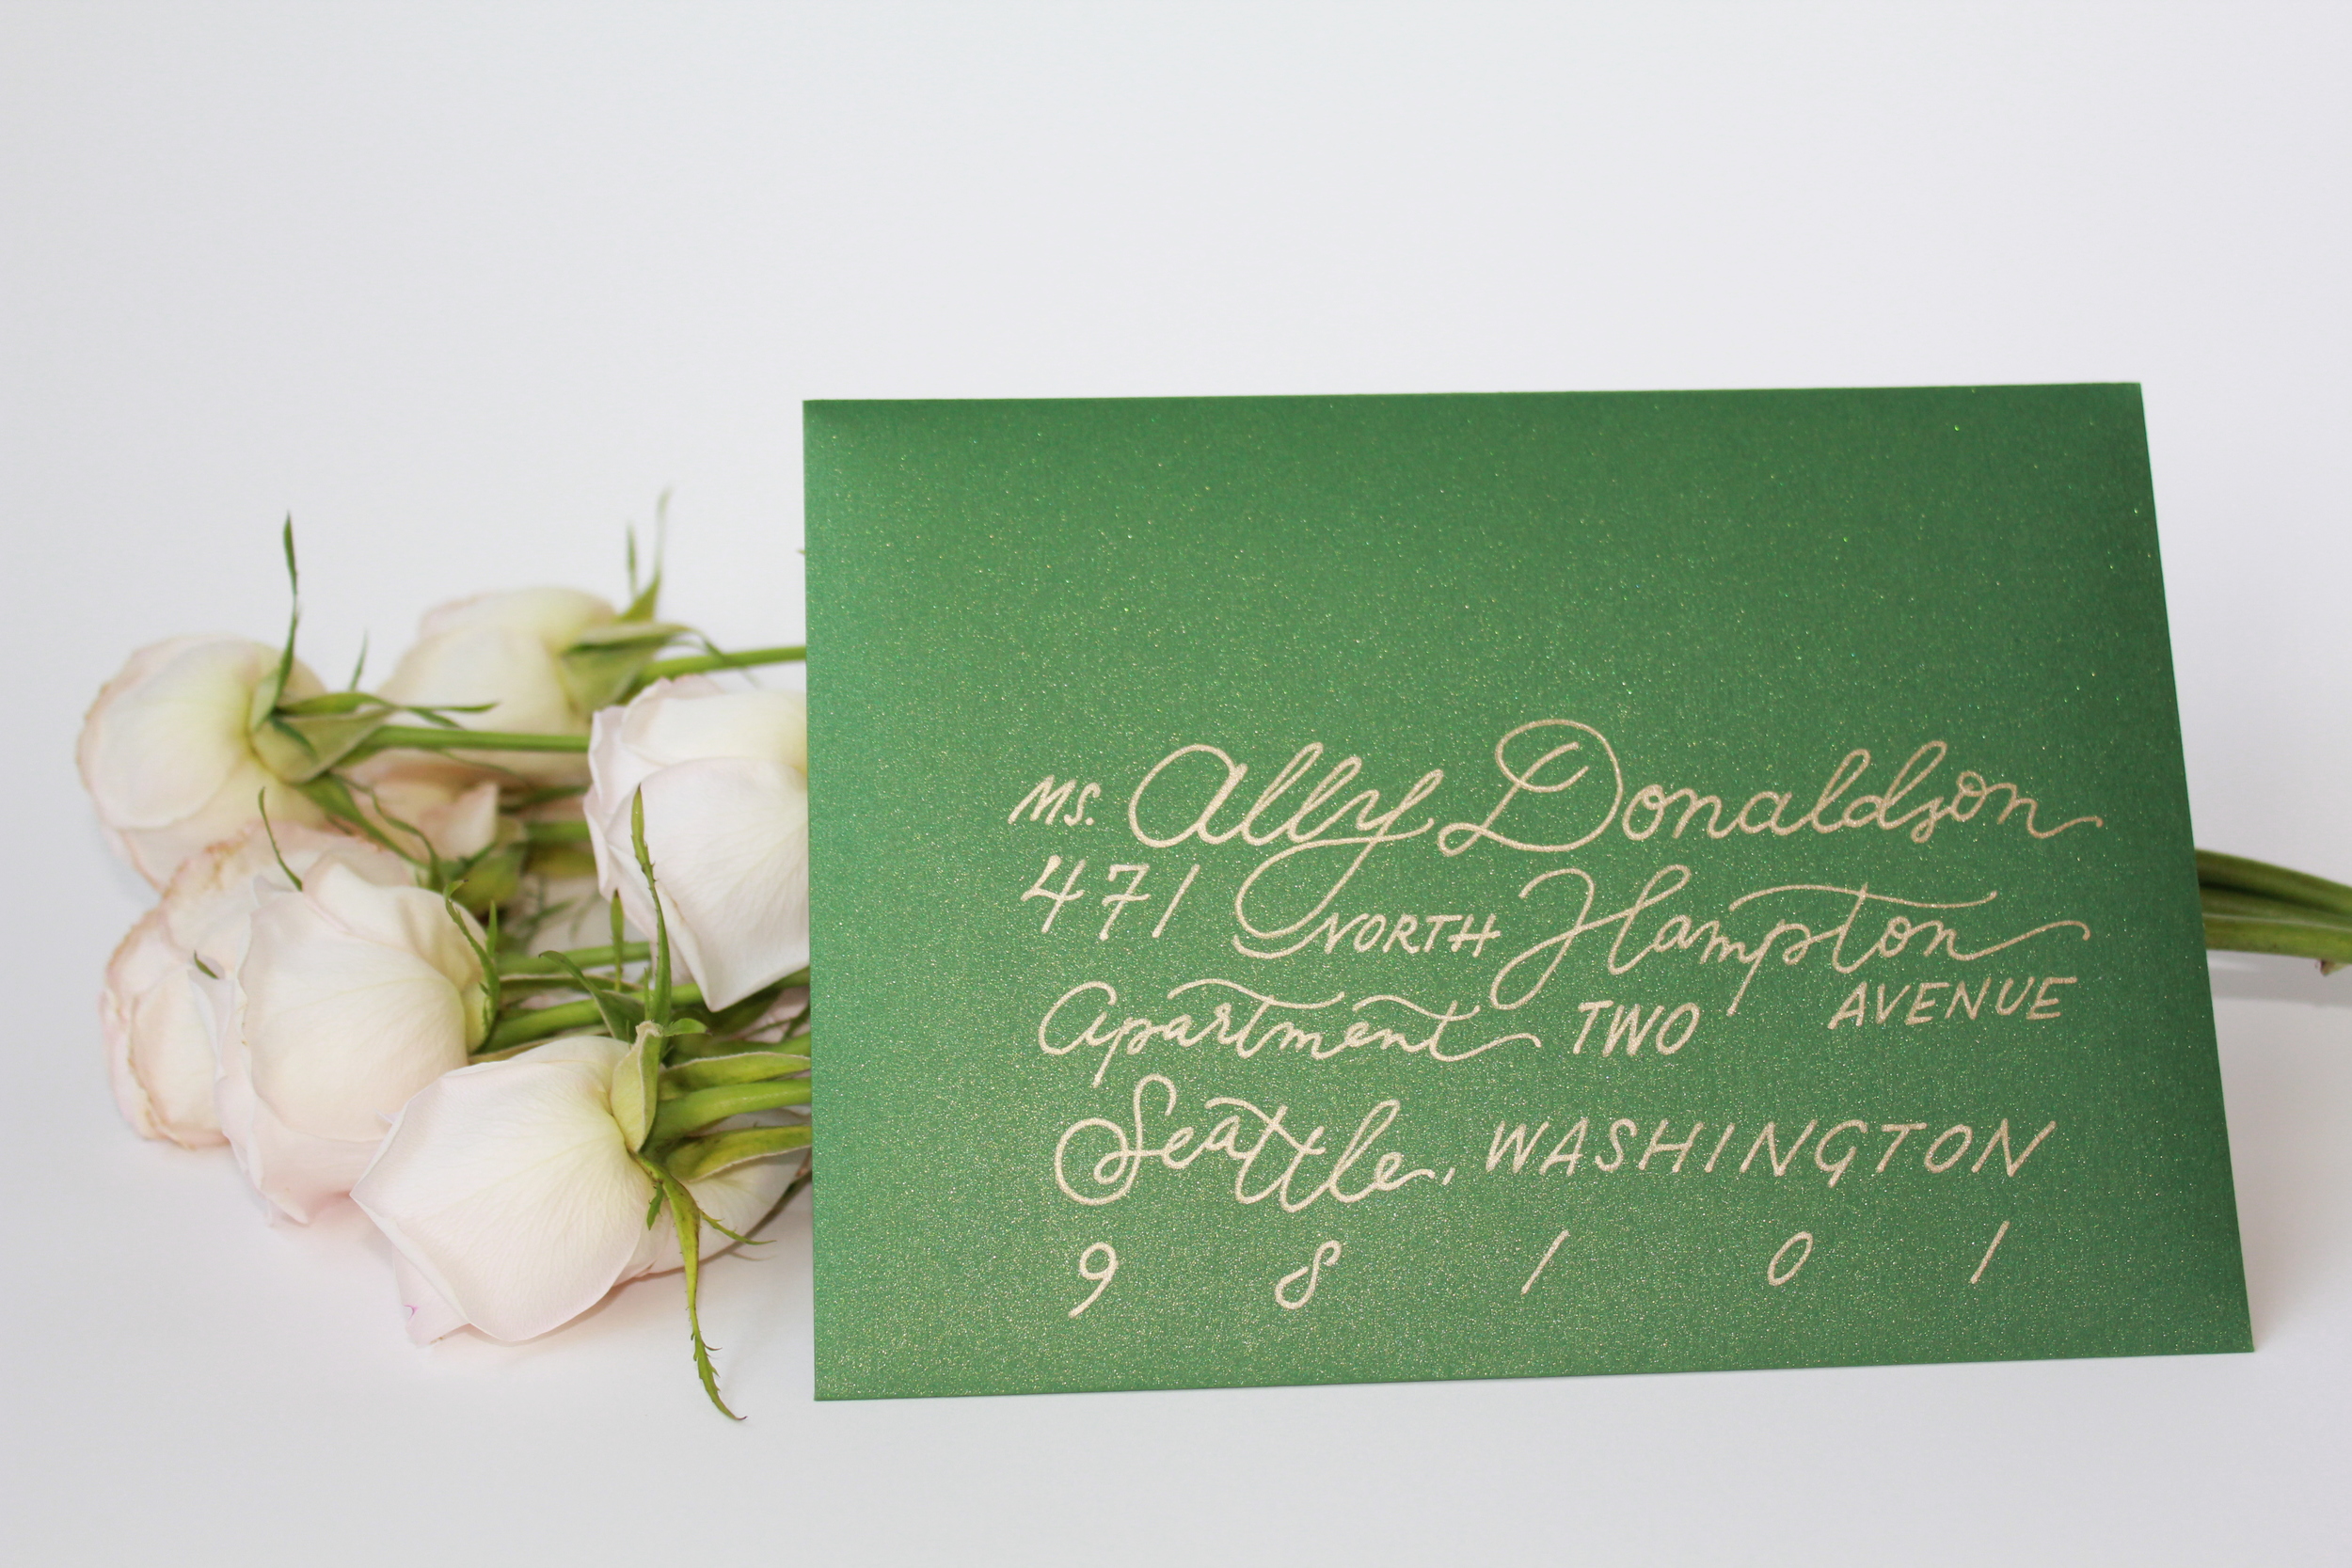 MS. Ally Donaldson
471 NORTH Hampton
AVENUE
Apartment TWO
Seattle, WASHINGTON
9 8 1 0 1